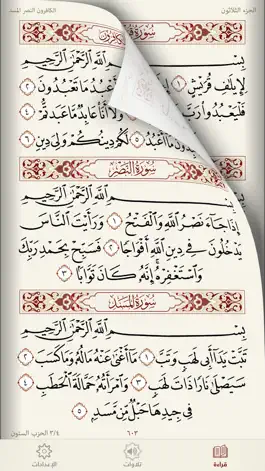 الجزء الثلاثون
الكافرون النصر المسد
سُورَةُ
بِسْمِ اللَّهِ الرَّحْمَٰنِ الرَّحِيمِ
أَعْبُدُ مَا تَعْبُدُونَ ٢
لِإِيلَٰفِ قُرَيْشٍ ١
وَلَا أَنَا عَابِدٌ مَّا عَبَدتُّمْ ٤
فَلْيَعْبُدُوا رَبَّ
مَا أَعْبُدُ ٥ لَكُمْ دِينُكُمْ وَلِيَ دِينِ ٦
سُورَةُ النَّصْرِ
بِسْمِ اللَّهِ الرَّحْمَٰنِ الرَّحِيمِ
إِذَا جَاءَ نَصْرُ اللَّهِ وَالْفَتْحُ ١ وَرَأَيْتَ النَّاسَ
يَدْخُلُونَ فِي دِينِ اللَّهِ أَفْوَاجًا ٢ فَسَبِّحْ بِحَمْدِ رَبِّكَ
وَاسْتَغْفِرْهُ إِنَّهُ كَانَ تَوَّابًا ٣
سُورَةُ المَسَدِ
بِسْمِ اللَّهِ الرَّحْمَٰنِ الرَّحِيمِ
تَبَّتْ يَدَا أَبِي لَهَبٍ وَتَبَّ ١ مَا أَغْنَىٰ عَنْهُ مَالُهُ وَمَا كَسَبَ ٢
سَيَصْلَىٰ نَارًا ذَاتَ لَهَبٍ ٣ وَامْرَأَتُهُ حَمَّالَةَ الْحَطَبِ ٤
فِي جِيدِهَا حَبْلٌ مِّن مَّسَدٍ ٥
٦٠٣
٣/٤ الحزب الستون
قراءة
تلاوات
الإعدادات